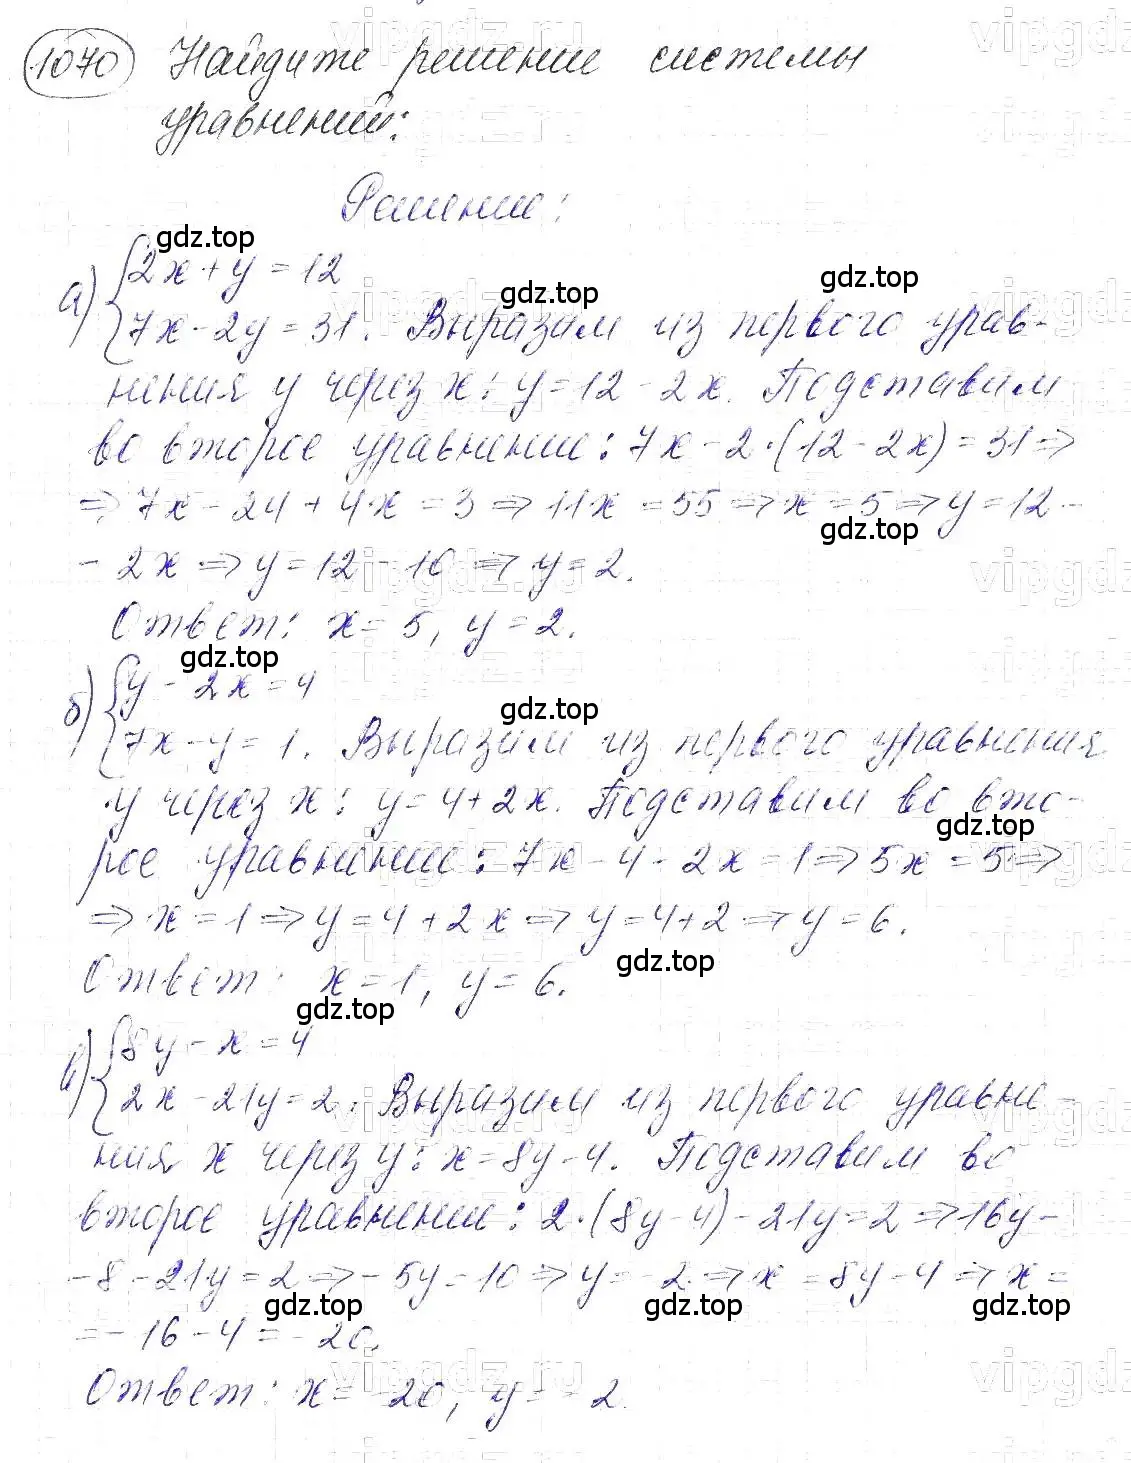 1070 Найдите решение системы
уравнений:
Решение:
gdz.top
а) { 2x + y = 12
gdz.top gdz.top
7x - 2y = 31. Выразим из первого урав-
нения y через x: y = 12 - 2x. Подставим
во второе уравнение: 7x - 2·(12 - 2x) = 31 ⇒
⇒ 7x - 24 + 4x = 3 ⇒ 11x = 55 ⇒ x = 5 ⇒ y = 12 -
gdz.top
- 2x ⇒ y = 12 - 10 ⇒ y = 2.
Ответ: x = 5, y = 2.
gdz.top
б) { y - 2x = 4
gdz.top
7x - y = 1. Выразим из первого уравнения
y через x: y = 4 + 2x. Подставим во вто-
gdz.top
рое уравнение: 7x - 4 - 2x = 1 ⇒ 5x = 5 ⇒
⇒ x = 1 ⇒ y = 4 + 2x ⇒ y = 4 + 2 ⇒ y = 6.
gdz.top
Ответ: x = 1, y = 6.
gdz.top
в) { 8y - x = 4
2x - 21y = 2. Выразим из первого уравне-
ния x через y: x = 8y - 4. Подставим во
второе уравнение: 2·(8y - 4) - 21y = 2 ⇒ 16y -
- 8 - 21y = 2 ⇒ - 5y = 10 ⇒ y = - 2 ⇒ x = 8y - 4 ⇒ x =
gdz.top gdz.top gdz.top
= - 16 - 4 = - 20.
Ответ: x = - 20, y = - 2.
vipgdz.ru